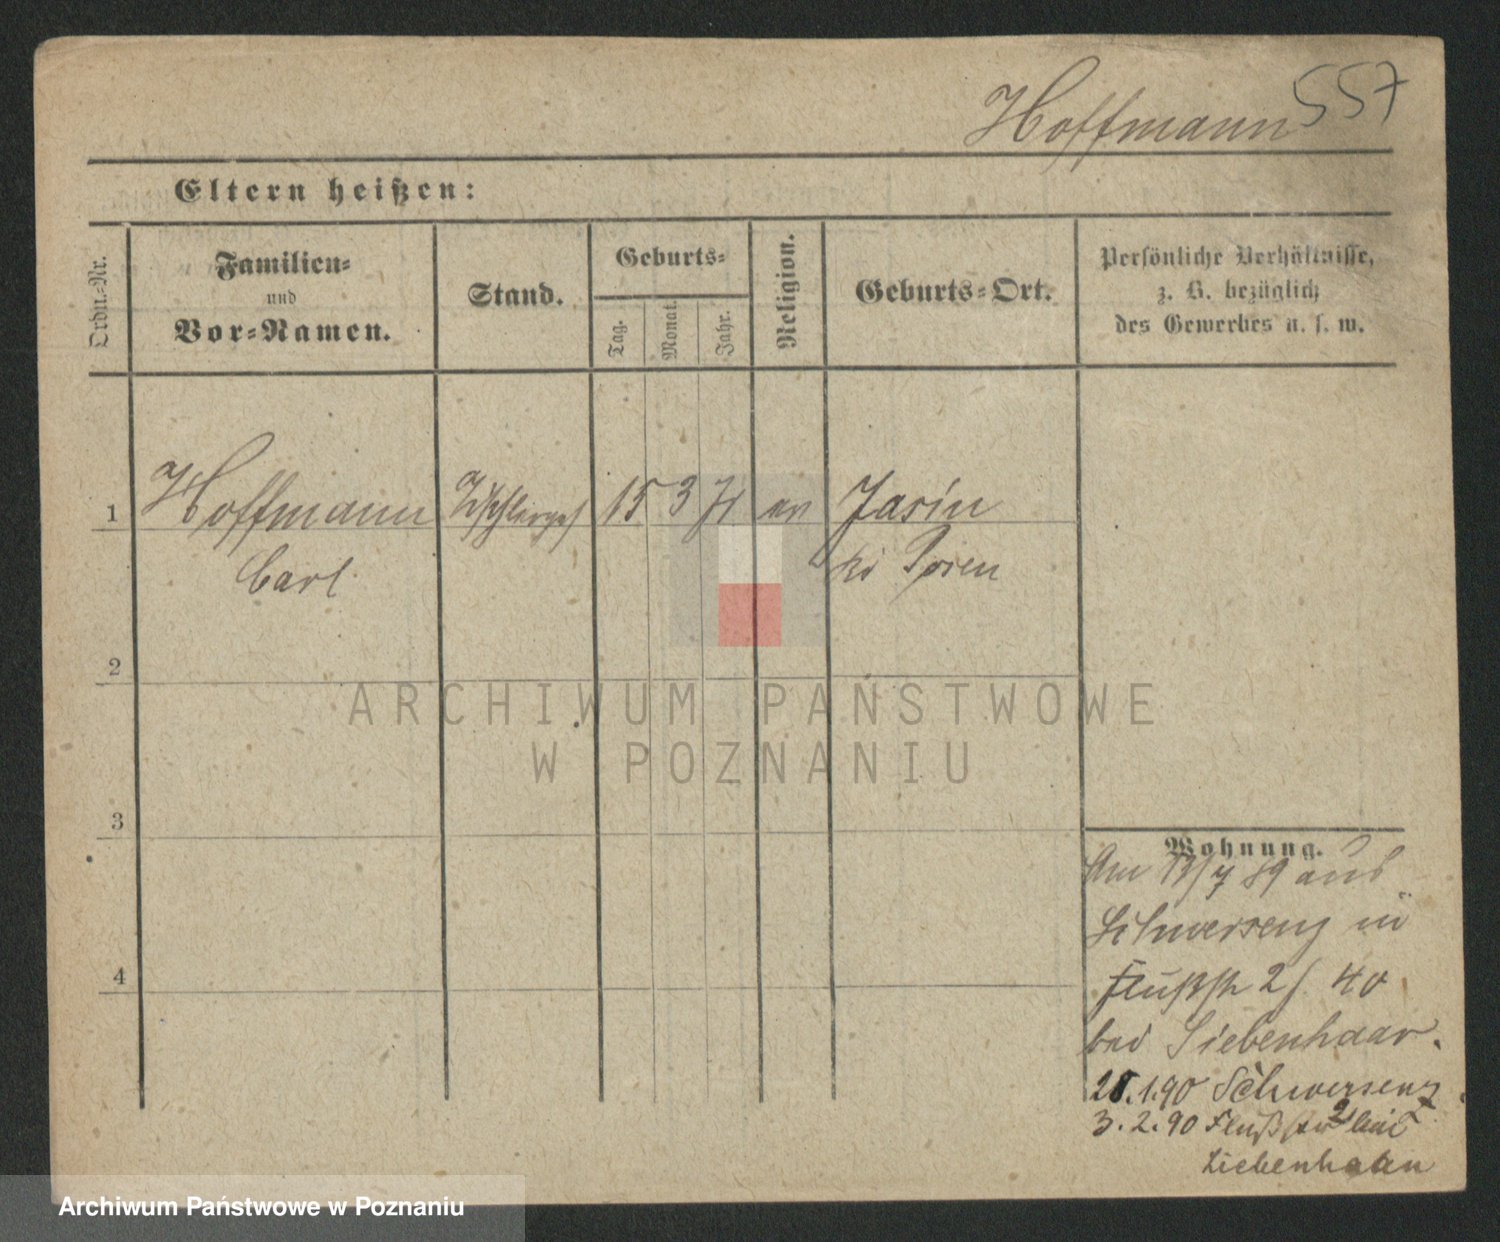 Hoffmann 557
Eltern heißen:
Ordn.-Nr.
Familien-
und
Vor-Namen.
Stand.
Geburts-
Tag.
Monat.
Jahr.
Religion.
Geburts-Ort.
Persönliche Verhältnisse,
z. B. bezüglich
des Gewerbes u. s. w.
1 Hoffmann Tischlerges 15 3 71 ev Jasin
Carl bei Posen
2
ARCHIWUM PAŃSTWOWE
W POZNANIU
3
Wohnung.
Am 7 89 aus
Schwersenz in
Flußstr 2 40
bei Siebenhaar.
1.90 Schwersenz
3.2.90 Flußstr 2 bei
4
Archiwum Państwowe w Poznaniu